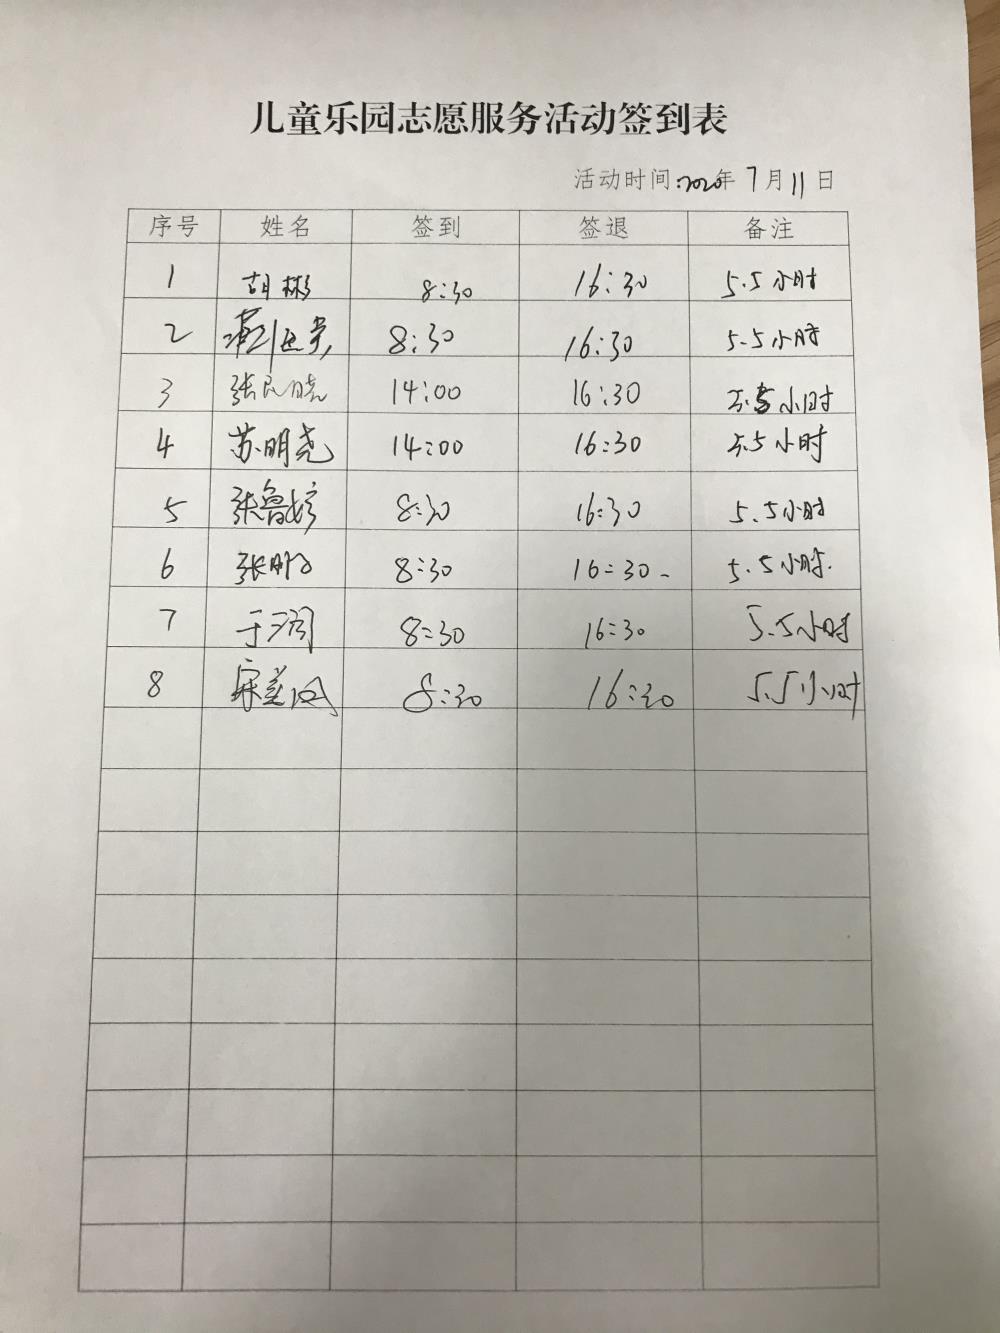 儿童乐园志愿服务活动签到表
活动时间:2020年7月11日
序号 姓名 签到 签退 备注
1 胡彬 8:30 16:30 5.5小时
2 8:30 16:30 5.5小时
3 张民晓 14:00 16:30 5.5小时
4 苏明尧 14:00 16:30 5.5小时
5 张鲁婷 8:30 16:30 5.5小时
6 张明 8:30 16:30 5.5小时.
7 于 8:30 16:30 5.5小时
8 宋美凤 8:30 16:30 5.5小时